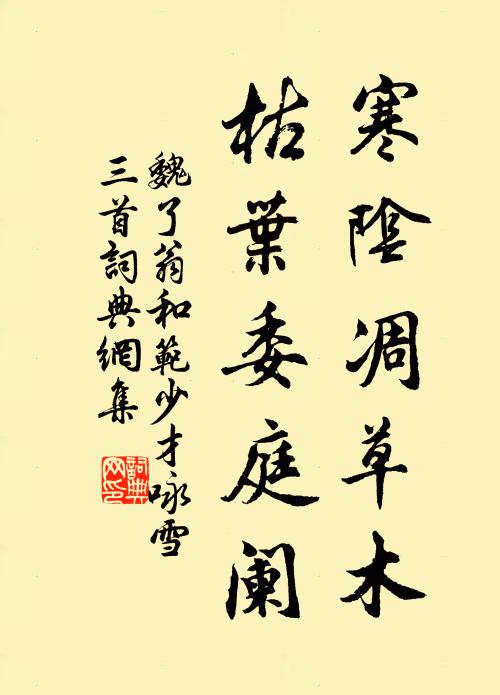 寒陰凋草木
枯葉委庭闌
魏了翁和範少才咏雪
三首詞典網集
詞典
网印